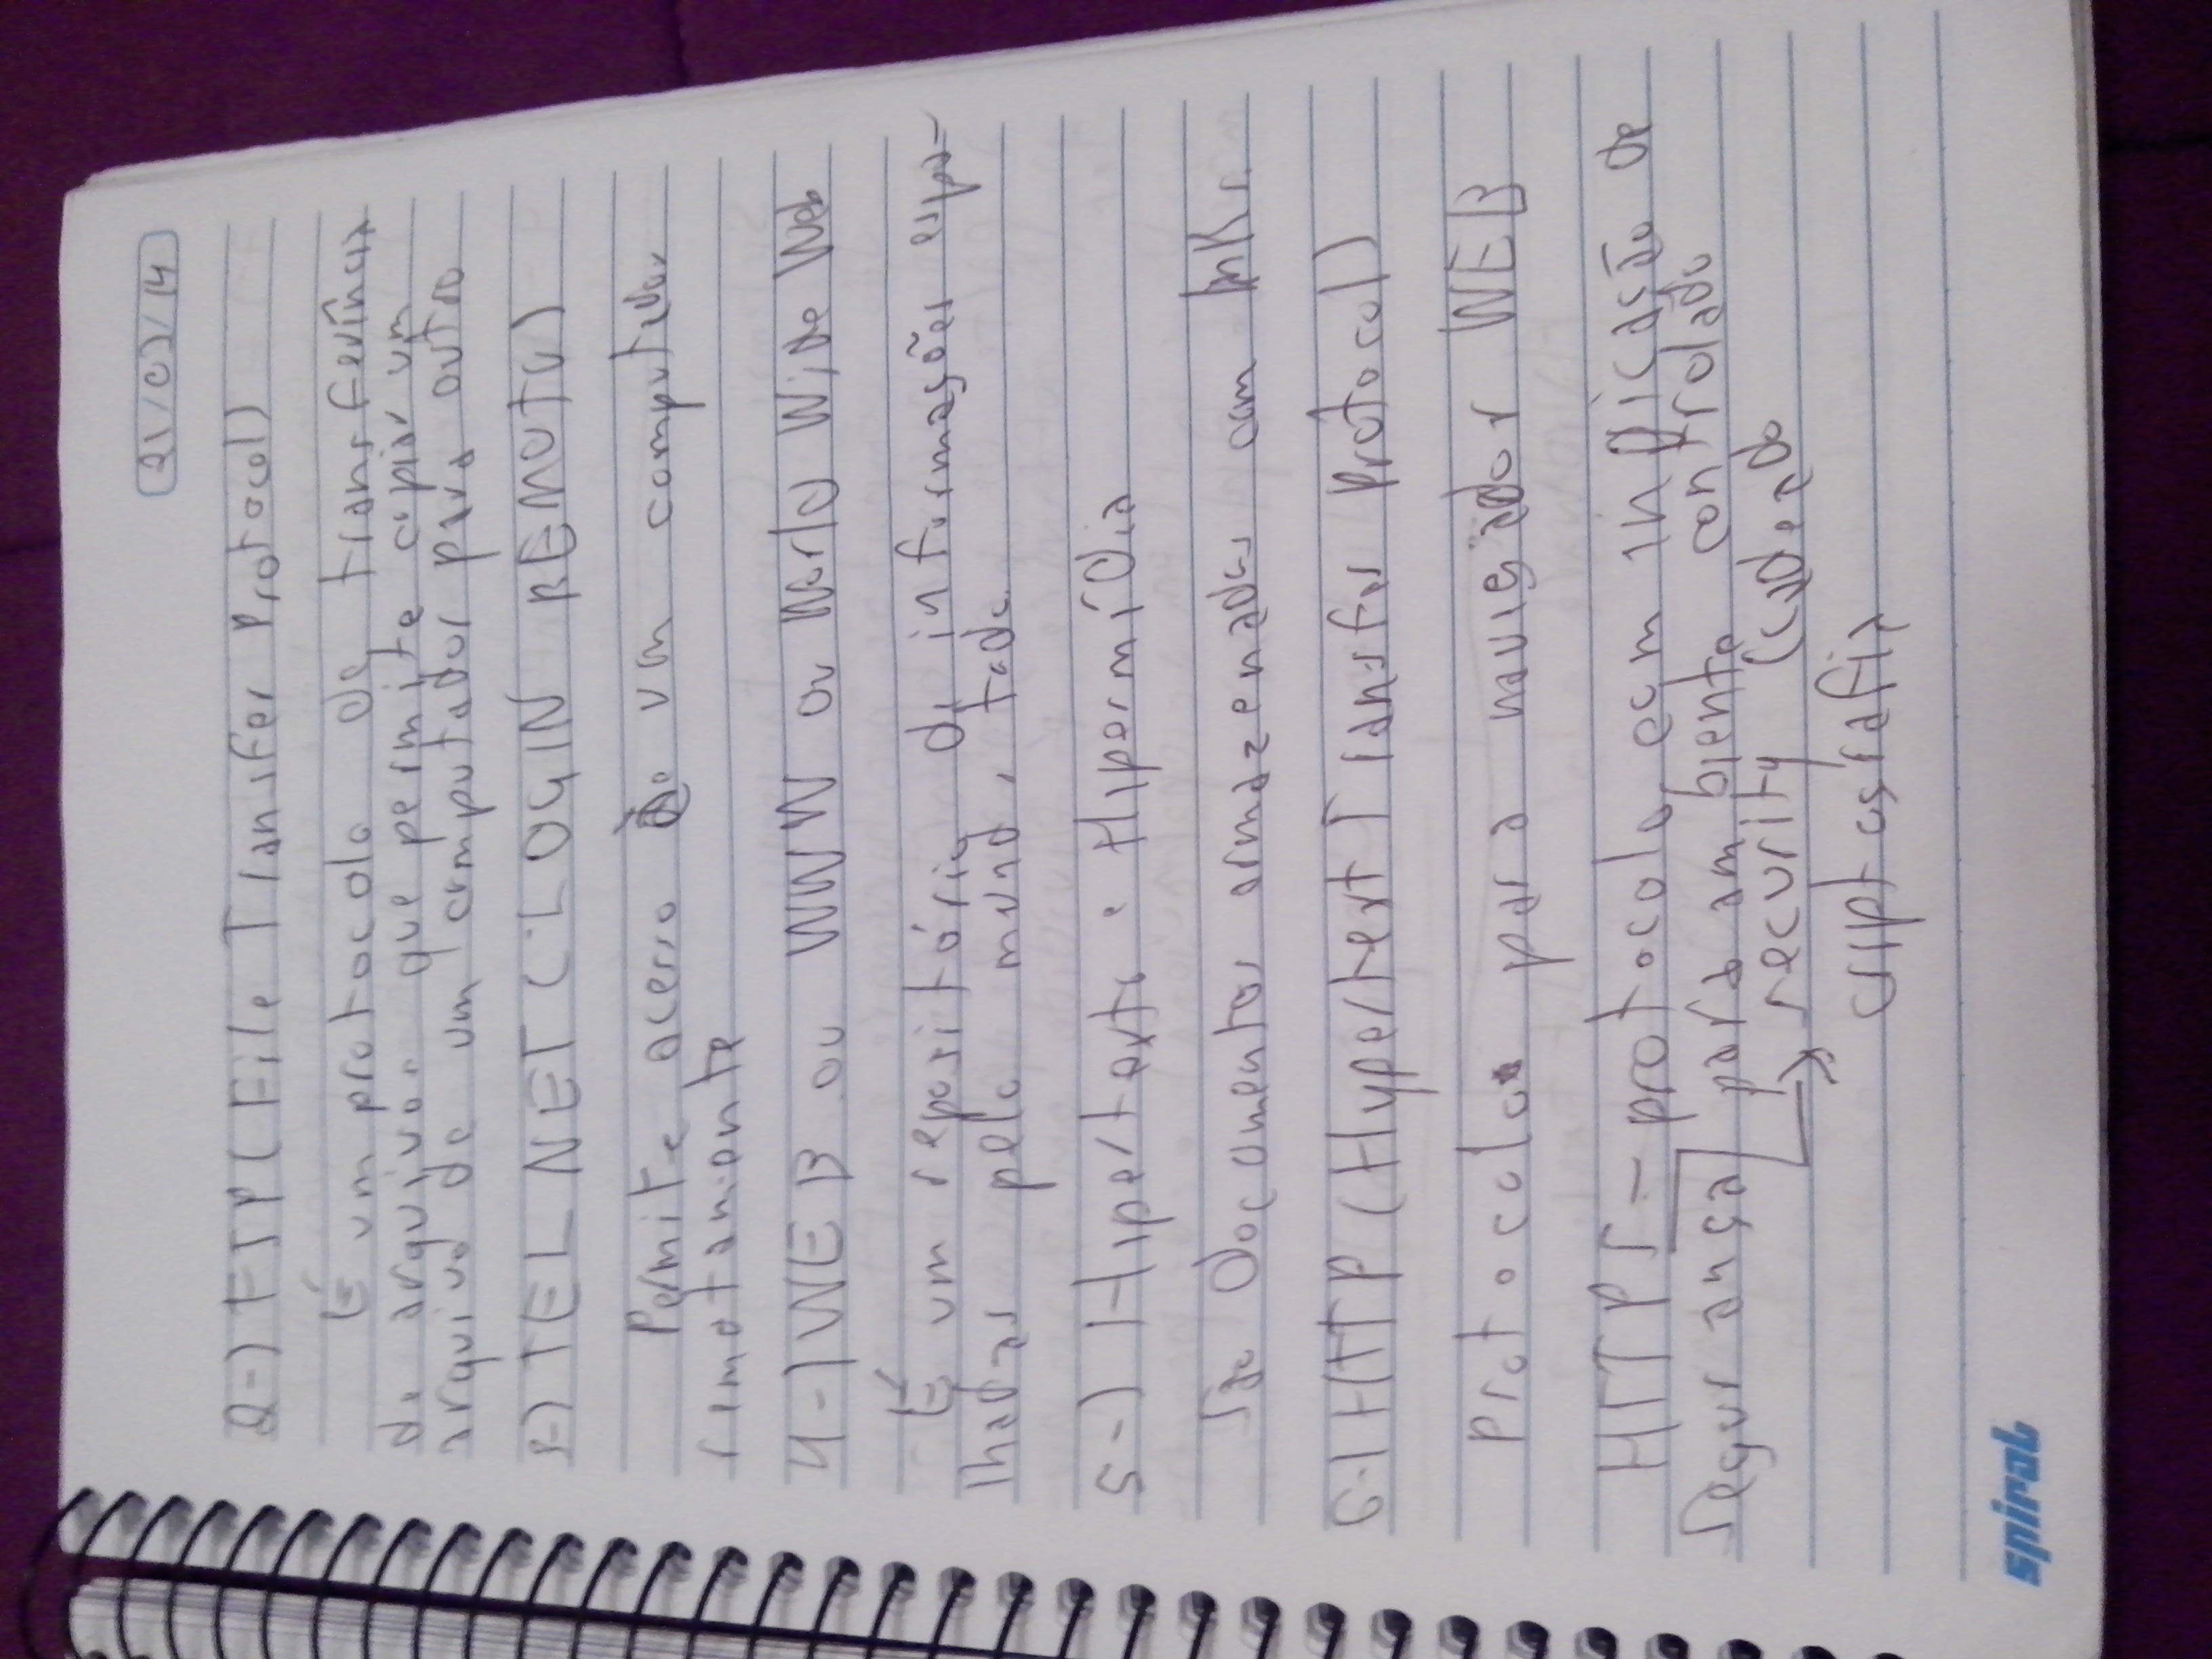 21/02/14
2-) FTP (File Transfer Protocol)
É um protocolo de transferência
de arquivos que permite copiar um
arquivo de um computador para outro
3-) TELNET (LOGIN REMOTO)
Permite acesso de um computador
remotamente
4-) WEB ou WWW ou World Wide Web
É um repositório de informações espa-
lhadas pelo mundo todo
5-) Hipertexto e Hipermídia
São documentos armazenados com links
6-) HTTP (Hypertext Transfer Protocol)
Protocolo para navegador WEB
HTTPS - protocolo com indicação de
segurança para ambiente controlado
security (cadeado
criptografia
spiral